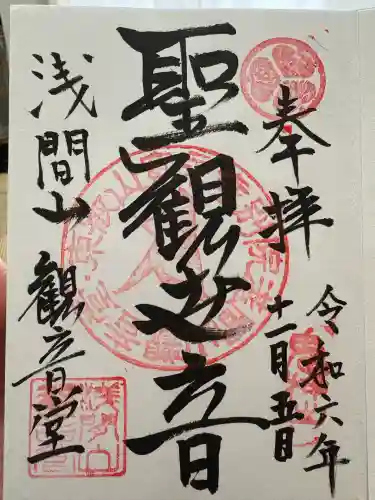 奉拝
令和六年
十一月五日
聖観世音
浅間山
観音堂